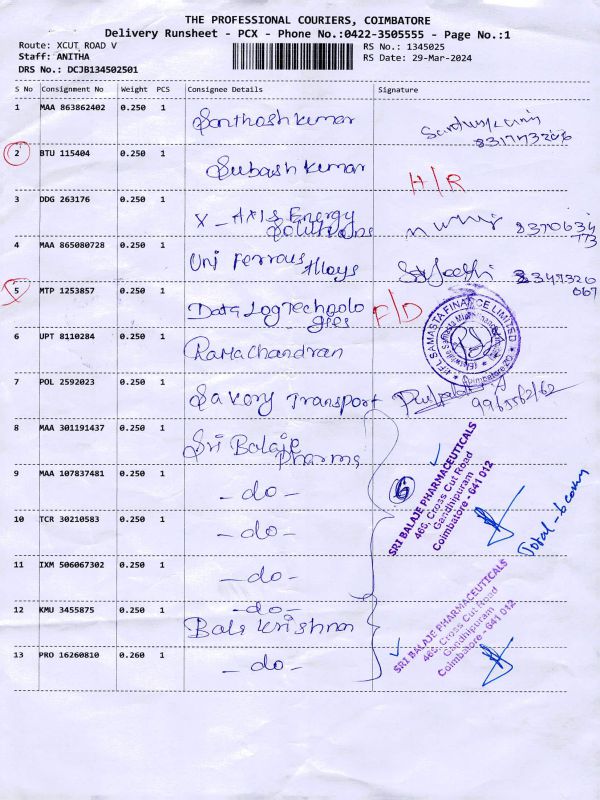 THE PROFESSIONAL COURIERS, COIMBATORE
Delivery Runsheet - PCX - Phone No.:0422-3505555 - Page No.:1
Route: XCUT ROAD V
RS No.: 1345025
Staff: ANITHA
RS Date: 29-Mar-2024
DRS No.: DCJB134502501
S No Consignment No Weight PCS Consignee Details Signature
1 MAA 863862402 0.250 1 Santhosh kumar
2 BTU 115404 0.250 1 Subash kumar H/R
3 DDG 263176 0.250 1 X - AXIS Energy
Solutions
4 MAA 865080728 0.250 1 Uni Ferrous
Alloys
5 MTP 1253857 0.250 1 Data Log Technolo F/D
gies
IIFL SAMASTA FINANCE LIMITED
6 UPT 8110284 0.250 1 Ramachandran
7 POL 2592023 0.250 1 Savory Transport
8 MAA 301191437 0.250 1 Sri Balaje
Pharma
9 MAA 107837481 0.250 1 - do -
6
SRI BALAJE PHARMACEUTICALS
466, Cross Cut Road
Gandhipuram
Coimbatore - 641 012
10 TCR 30210583 0.250 1 - do -
11 IXM 506067302 0.250 1 - do -
12 KMU 3455875 0.250 1 - do -
Bala Krishnan
13 PRO 16260810 0.260 1 - do -
SRI BALAJE PHARMACEUTICALS
466, Cross Cut Road
Gandhipuram
Coimbatore - 641 012